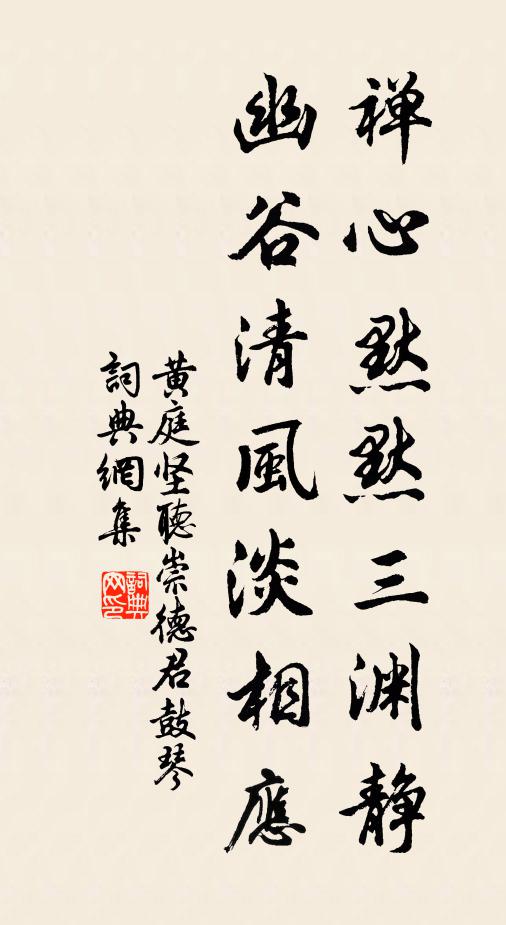 禅心默默三渊静
幽谷清風淡相應
黄庭坚聽崇德君鼓琴
詞典網集
詞典网印